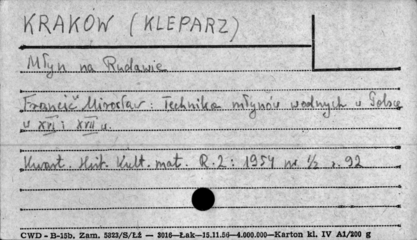 KRAKÓW (KLEPARZ)
Młyn na Rudawie
Franciš Mirosław: Technika młynów wodnych w Polsce
w XVI i XVII w.
Kwart. Hist. Kult. mat. R.2: 1954 nr 1/2 s. 92
CWD - B-15b. Zam. 5323/S/Łź — 3016—Łak—15.11.56—4.000.000—Karton kl. IV A1/200 g